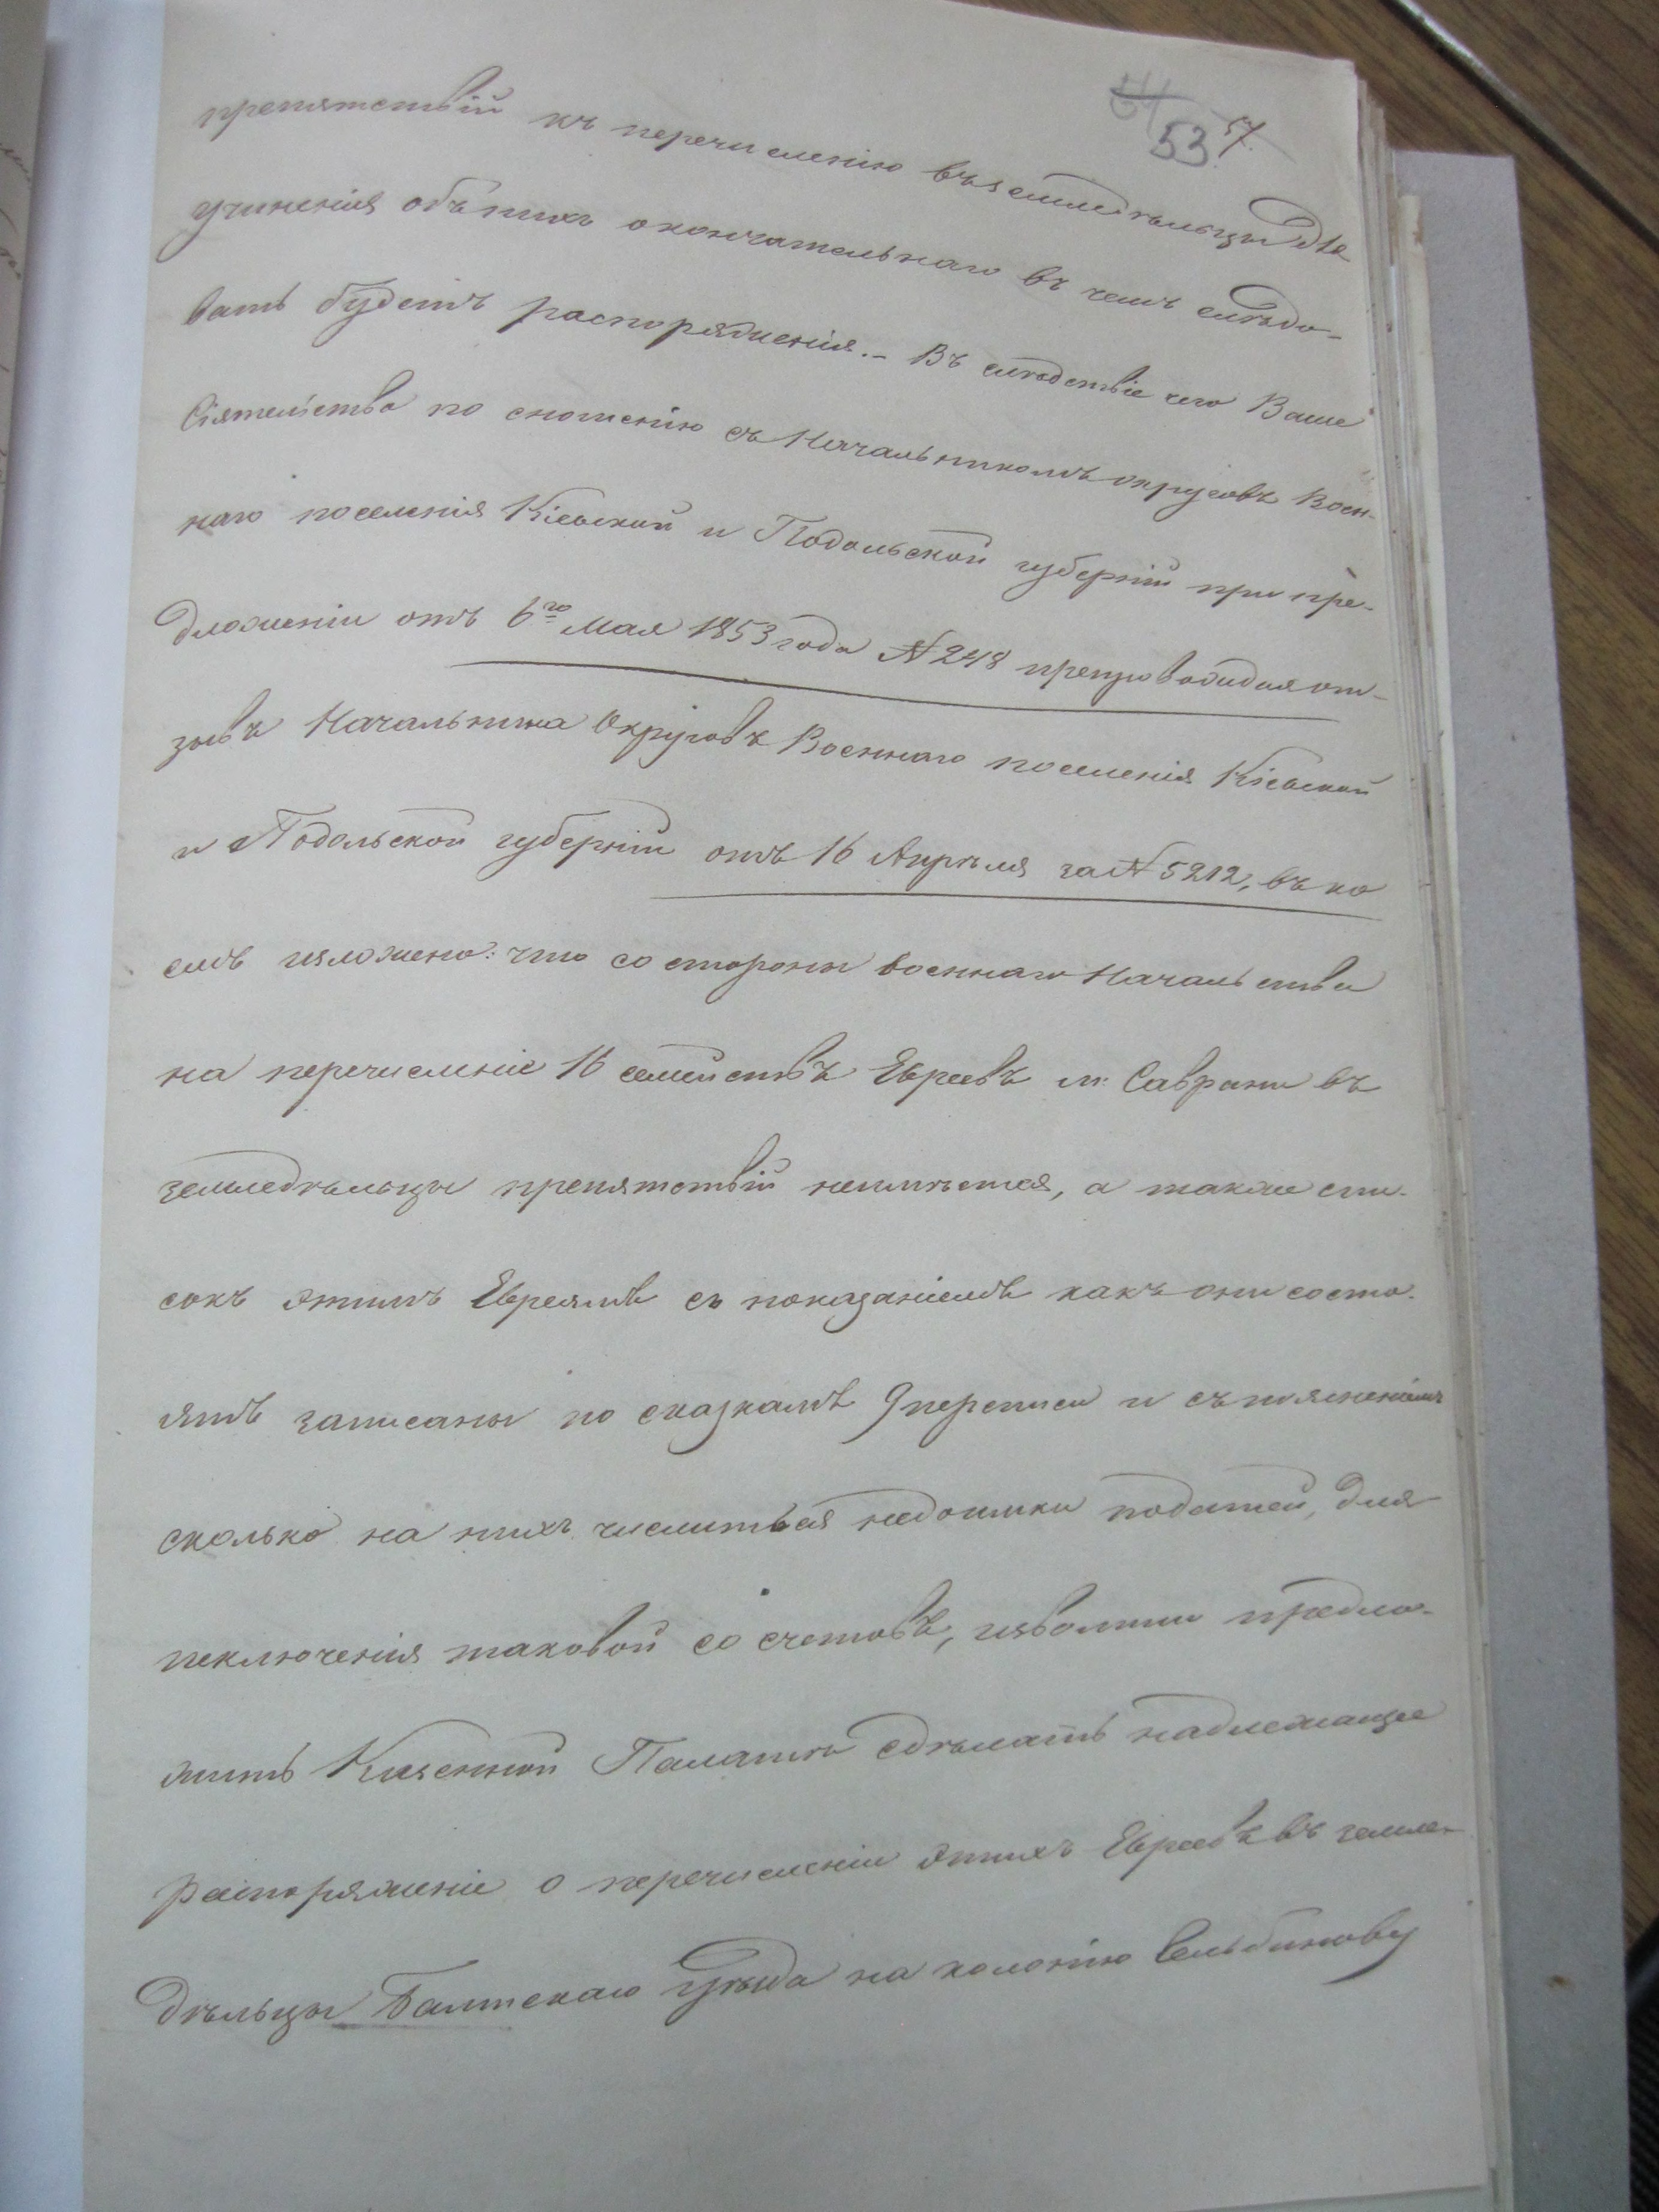 53
препятствій къ перечисленію въ земледѣльцы для
учиненія объ нихъ окончательнаго въ чемъ слѣдо-
вать будетъ распоряженія. – Въ слѣдствіе чего Ваше
Сіятельство по сношенію съ Начальникомъ округовъ Воен-
наго поселенія Кіевской и Подольской губерній при пре-
дложеніи отъ 6го Мая 1853 года № 248 препровождая от-
зывъ Начальника Округовъ Военнаго поселенія Кіевской
и Подольской губерній отъ 16 Апрѣля за № 5212, въ ко
емъ изложено: что со стороны военнаго Начальства
на перечисленіе 16 семействъ Евреевъ м. Саврани въ
земледѣльцы препятствій неимѣется, а также спи-
сокъ этимъ Евреямъ съ показаніемъ какъ они состо-
ятъ записаны по сказкамъ 9 переписи и съ поясненіемъ
сколько на нихъ числиться недоимки податей, для
исключенія таковой со счетовъ, изволили предло-
жить Казенной Палатѣ сдѣлать надлежащее
распоряженіе о перечисленіи этихъ Евреевъ въ земле-
дѣльцы Балтскаго уѣзда на колонію